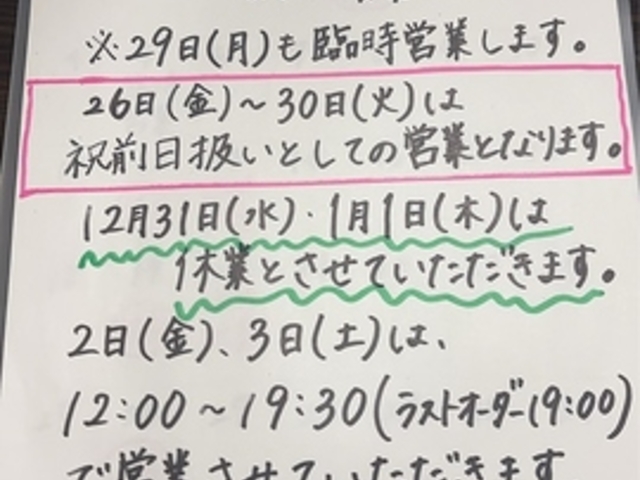 ※29日(月)も臨時営業します。
26日(金)～30日(火)は
祝前日扱いとしての営業となります。
12月31日(水)・1月1日(木)は
休業とさせていただきます。
2日(金)、3日(土)は、
12:00～19:30(ラストオーダー19:00)
で営業させていただきます。